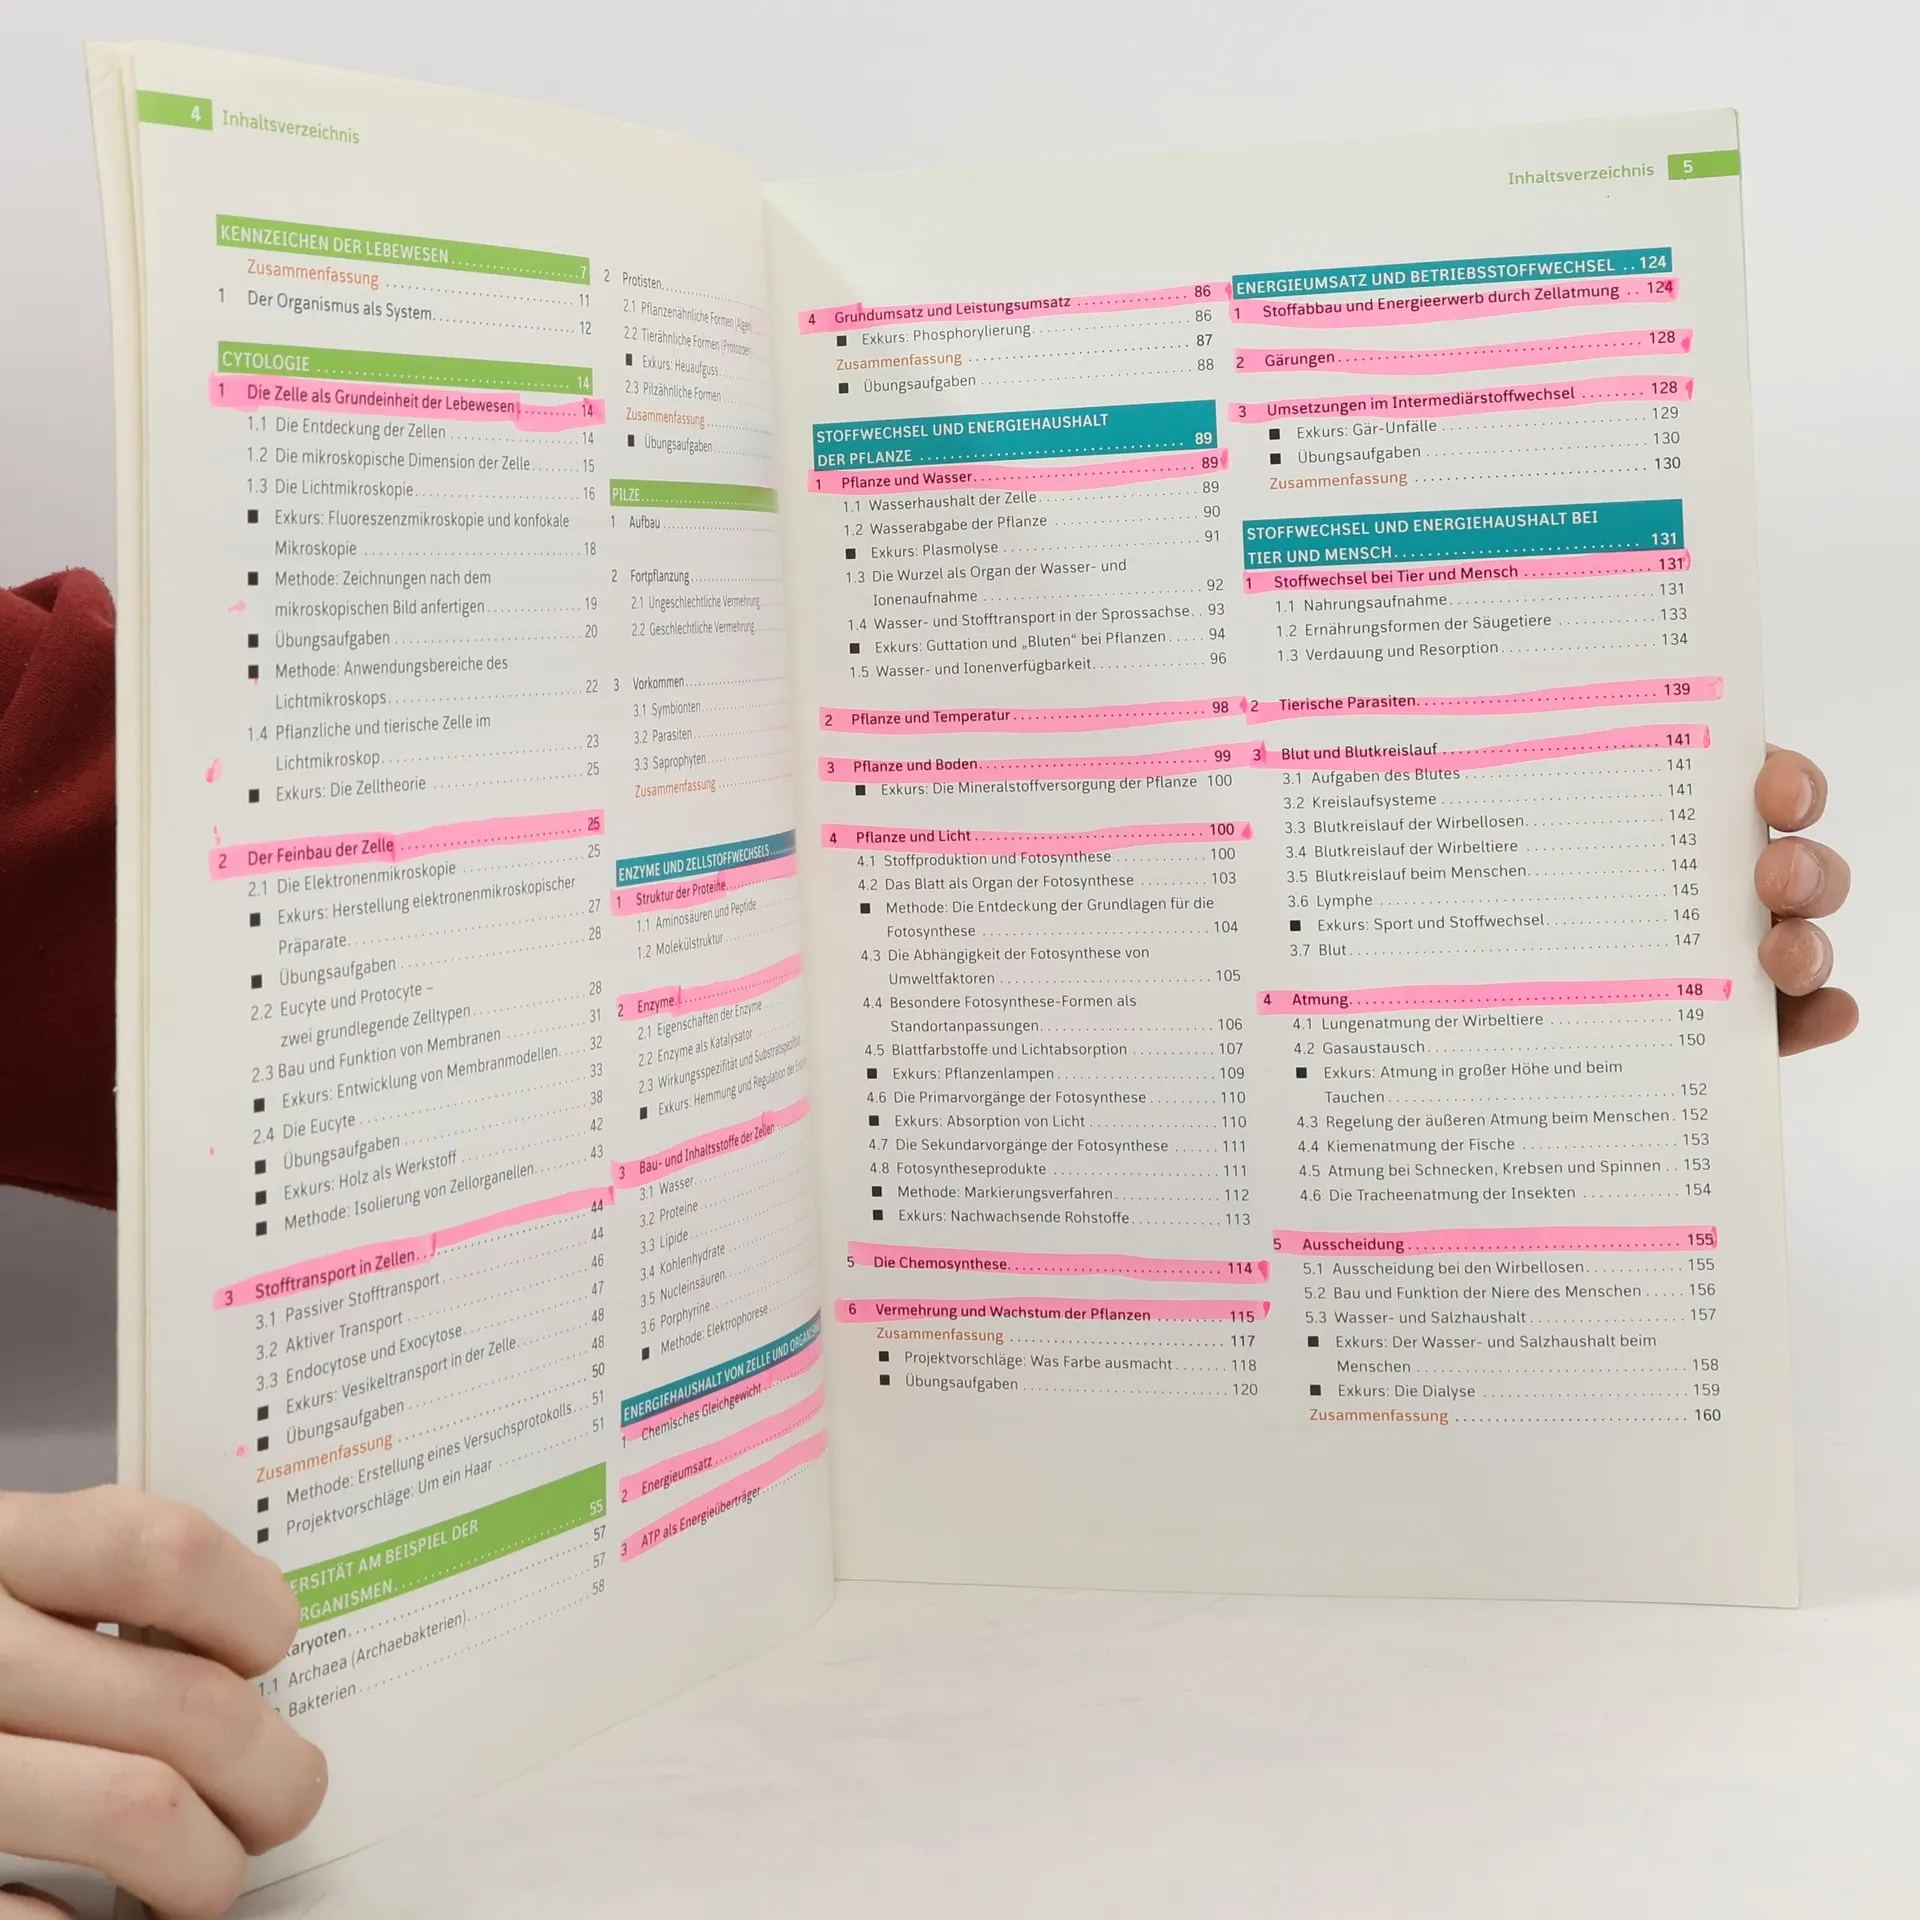 4 Inhaltsverzeichnis
KENNZEICHEN DER LEBEWESEN 7
Zusammenfassung 11
1 Der Organismus als System 12
CYTOLOGIE 14
1 Die Zelle als Grundeinheit der Lebewesen 14
1.1 Die Entdeckung der Zellen 14
1.2 Die mikroskopische Dimension der Zelle 15
1.3 Die Lichtmikroskopie 16
■ Exkurs: Fluoreszenzmikroskopie und konfokale
Mikroskopie 18
■ Methode: Zeichnungen nach dem
mikroskopischen Bild anfertigen 19
■ Übungsaufgaben 20
■ Methode: Anwendungsbereiche des
Lichtmikroskops 22
1.4 Pflanzliche und tierische Zelle im
Lichtmikroskop 23
■ Exkurs: Die Zelltheorie 25
2 Der Feinbau der Zelle 25
2.1 Die Elektronenmikroskopie 25
■ Exkurs: Herstellung elektronenmikroskopischer
Präparate 27
■ Übungsaufgaben 28
2.2 Eucyte und Protocyte –
zwei grundlegende Zelltypen 28
2.3 Bau und Funktion von Membranen 31
■ Exkurs: Entwicklung von Membranmodellen 32
2.4 Die Eucyte 33
■ Übungsaufgaben 38
■ Exkurs: Holz als Werkstoff 42
■ Methode: Isolierung von Zellorganellen 43
3 Stofftransport in Zellen 44
3.1 Passiver Stofftransport 44
3.2 Aktiver Transport 46
3.3 Endocytose und Exocytose 47
■ Exkurs: Vesikeltransport in der Zelle 48
■ Übungsaufgaben 48
Zusammenfassung 50
■ Methode: Erstellung eines Versuchsprotokolls 51
■ Projektvorschläge: Um ein Haar 51
ERSITÄT AM BEISPIEL DER
RGANISMEN 55
karyoten 57
1.1 Archaea (Archaebakterien) 57
Bakterien 58
2 Protisten
2.1 Pflanzenähnliche Formen (Algen)
2.2 Tierähnliche Formen (Protozoen)
■ Exkurs: Heuaufguss
2.3 Pilzähnliche Formen
Zusammenfassung
■ Übungsaufgaben
PILZE
1 Aufbau
2 Fortpflanzung
2.1 Ungeschlechtliche Vermehrung
2.2 Geschlechtliche Vermehrung
3 Vorkommen
3.1 Symbionten
3.2 Parasiten
3.3 Saprophyten
Zusammenfassung
ENZYME UND ZELLSTOFFWECHSELS
1 Struktur der Proteine
1.1 Aminosäuren und Peptide
1.2 Molekülstruktur
2 Enzyme
2.1 Eigenschaften der Enzyme
2.2 Enzyme als Katalysator
2.3 Wirkungsspezifität und Substratspezifität
■ Exkurs: Hemmung und Regulation der
3 Bau- und Inhaltsstoffe der Zellen
3.1 Wasser
3.2 Proteine
3.3 Lipide
3.4 Kohlenhydrate
3.5 Nucleinsäuren
3.6 Porphyrine
■ Methode: Elektrophorese
ENERGIEHAUSHALT VON ZELLE UND ORGANISMUS
1 Chemisches Gleichgewicht
2 Energieumsatz
3 ATP als Energieüberträger
Inhaltsverzeichnis 5
4 Grundumsatz und Leistungsumsatz 86
■ Exkurs: Phosphorylierung 86
Zusammenfassung 87
■ Übungsaufgaben 88
STOFFWECHSEL UND ENERGIEHAUSHALT
DER PFLANZE 89
1 Pflanze und Wasser 89
1.1 Wasserhaushalt der Zelle 89
1.2 Wasserabgabe der Pflanze 90
■ Exkurs: Plasmolyse 91
1.3 Die Wurzel als Organ der Wasser- und
Ionenaufnahme 92
1.4 Wasser- und Stofftransport in der Sprossachse 93
■ Exkurs: Guttation und „Bluten“ bei Pflanzen 94
1.5 Wasser- und Ionenverfügbarkeit 96
2 Pflanze und Temperatur 98
3 Pflanze und Boden 99
■ Exkurs: Die Mineralstoffversorgung der Pflanze 100
4 Pflanze und Licht 100
4.1 Stoffproduktion und Fotosynthese 100
4.2 Das Blatt als Organ der Fotosynthese 103
■ Methode: Die Entdeckung der Grundlagen für die
Fotosynthese 104
4.3 Die Abhängigkeit der Fotosynthese von
Umweltfaktoren 105
4.4 Besondere Fotosynthese-Formen als
Standortanpassungen 106
4.5 Blattfarbstoffe und Lichtabsorption 107
■ Exkurs: Pflanzenlampen 109
4.6 Die Primarvorgänge der Fotosynthese 110
■ Exkurs: Absorption von Licht 110
4.7 Die Sekundarvorgänge der Fotosynthese 111
4.8 Fotosyntheseprodukte 111
■ Methode: Markierungsverfahren 112
■ Exkurs: Nachwachsende Rohstoffe 113
5 Die Chemosynthese 114
6 Vermehrung und Wachstum der Pflanzen 115
Zusammenfassung 117
■ Projektvorschläge: Was Farbe ausmacht 118
■ Übungsaufgaben 120
ENERGIEUMSATZ UND BETRIEBSSTOFFWECHSEL 124
1 Stoffabbau und Energieerwerb durch Zellatmung 124
2 Gärungen 128
3 Umsetzungen im Intermediärstoffwechsel 128
■ Exkurs: Gär-Unfälle 129
■ Übungsaufgaben 130
Zusammenfassung 130
STOFFWECHSEL UND ENERGIEHAUSHALT BEI
TIER UND MENSCH 131
1 Stoffwechsel bei Tier und Mensch 131
1.1 Nahrungsaufnahme 131
1.2 Ernährungsformen der Säugetiere 133
1.3 Verdauung und Resorption 134
2 Tierische Parasiten 139
3 Blut und Blutkreislauf 141
3.1 Aufgaben des Blutes 141
3.2 Kreislaufsysteme 141
3.3 Blutkreislauf der Wirbellosen 142
3.4 Blutkreislauf der Wirbeltiere 143
3.5 Blutkreislauf beim Menschen 144
3.6 Lymphe 145
■ Exkurs: Sport und Stoffwechsel 146
3.7 Blut 147
4 Atmung 148
4.1 Lungenatmung der Wirbeltiere 149
4.2 Gasaustausch 150
■ Exkurs: Atmung in großer Höhe und beim
Tauchen 152
4.3 Regelung der äußeren Atmung beim Menschen 152
4.4 Kiemenatmung der Fische 153
4.5 Atmung bei Schnecken, Krebsen und Spinnen 153
4.6 Die Tracheenatmung der Insekten 154
5 Ausscheidung 155
5.1 Ausscheidung bei den Wirbellosen 155
5.2 Bau und Funktion der Niere des Menschen 156
5.3 Wasser- und Salzhaushalt 157
■ Exkurs: Der Wasser- und Salzhaushalt beim
Menschen 158
■ Exkurs: Die Dialyse 159
Zusammenfassung 160